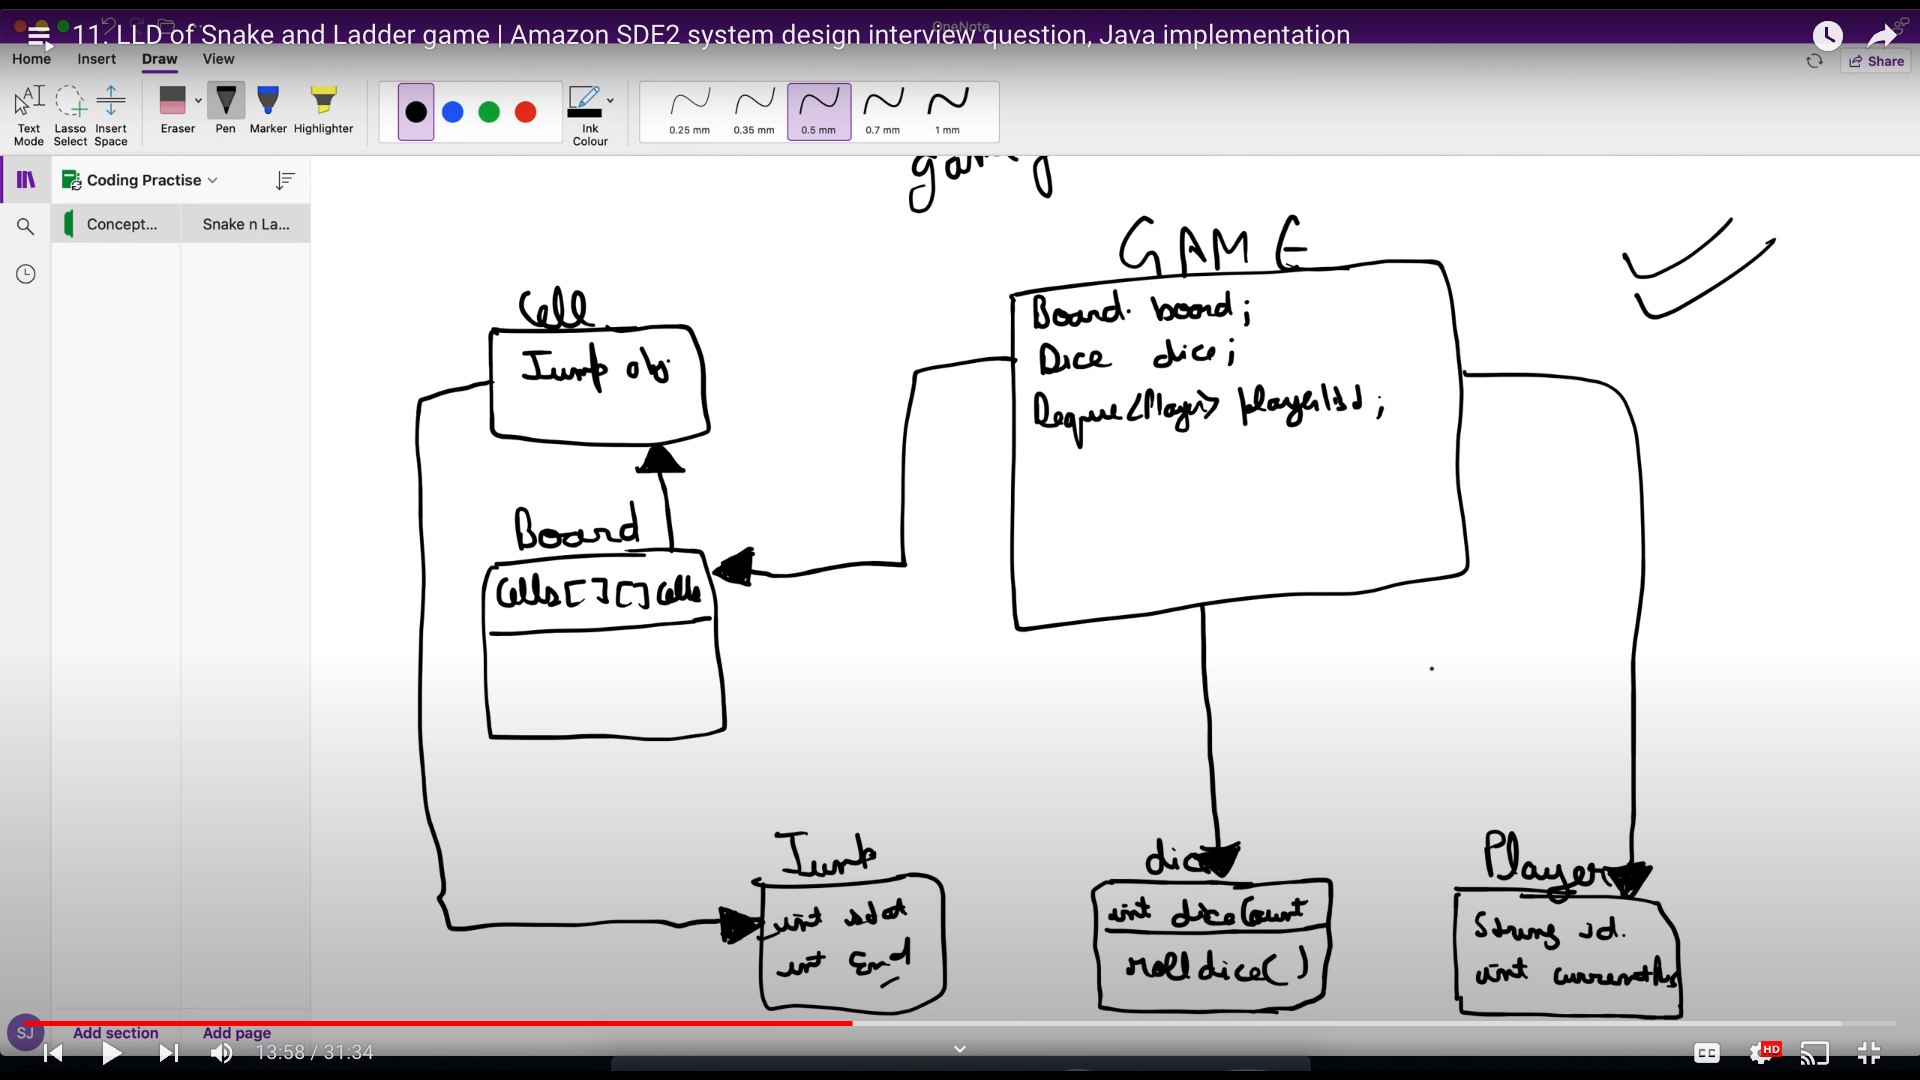 11. LLD of Snake and Ladder game | Amazon SDE2 system design interview question, Java implementation
OneNote
Home Insert Draw View
Share
Text Mode
Lasso Select
Insert Space
Eraser
Pen
Marker
Highlighter
Ink Colour
0.25 mm
0.35 mm
0.5 mm
0.7 mm
1 mm
Coding Practise
Concept...
Snake n La...
GAME
Board board;
Dice dice;
Deque<Player> playerlist;
Cell
Jump obj
Board
Cells[][] cells
Jump
int start
int End
dice
int diceCount
rolldice()
Player
String id.
int currentPos
SJ
Add section
Add page
13:58 / 31:34
CC
HD